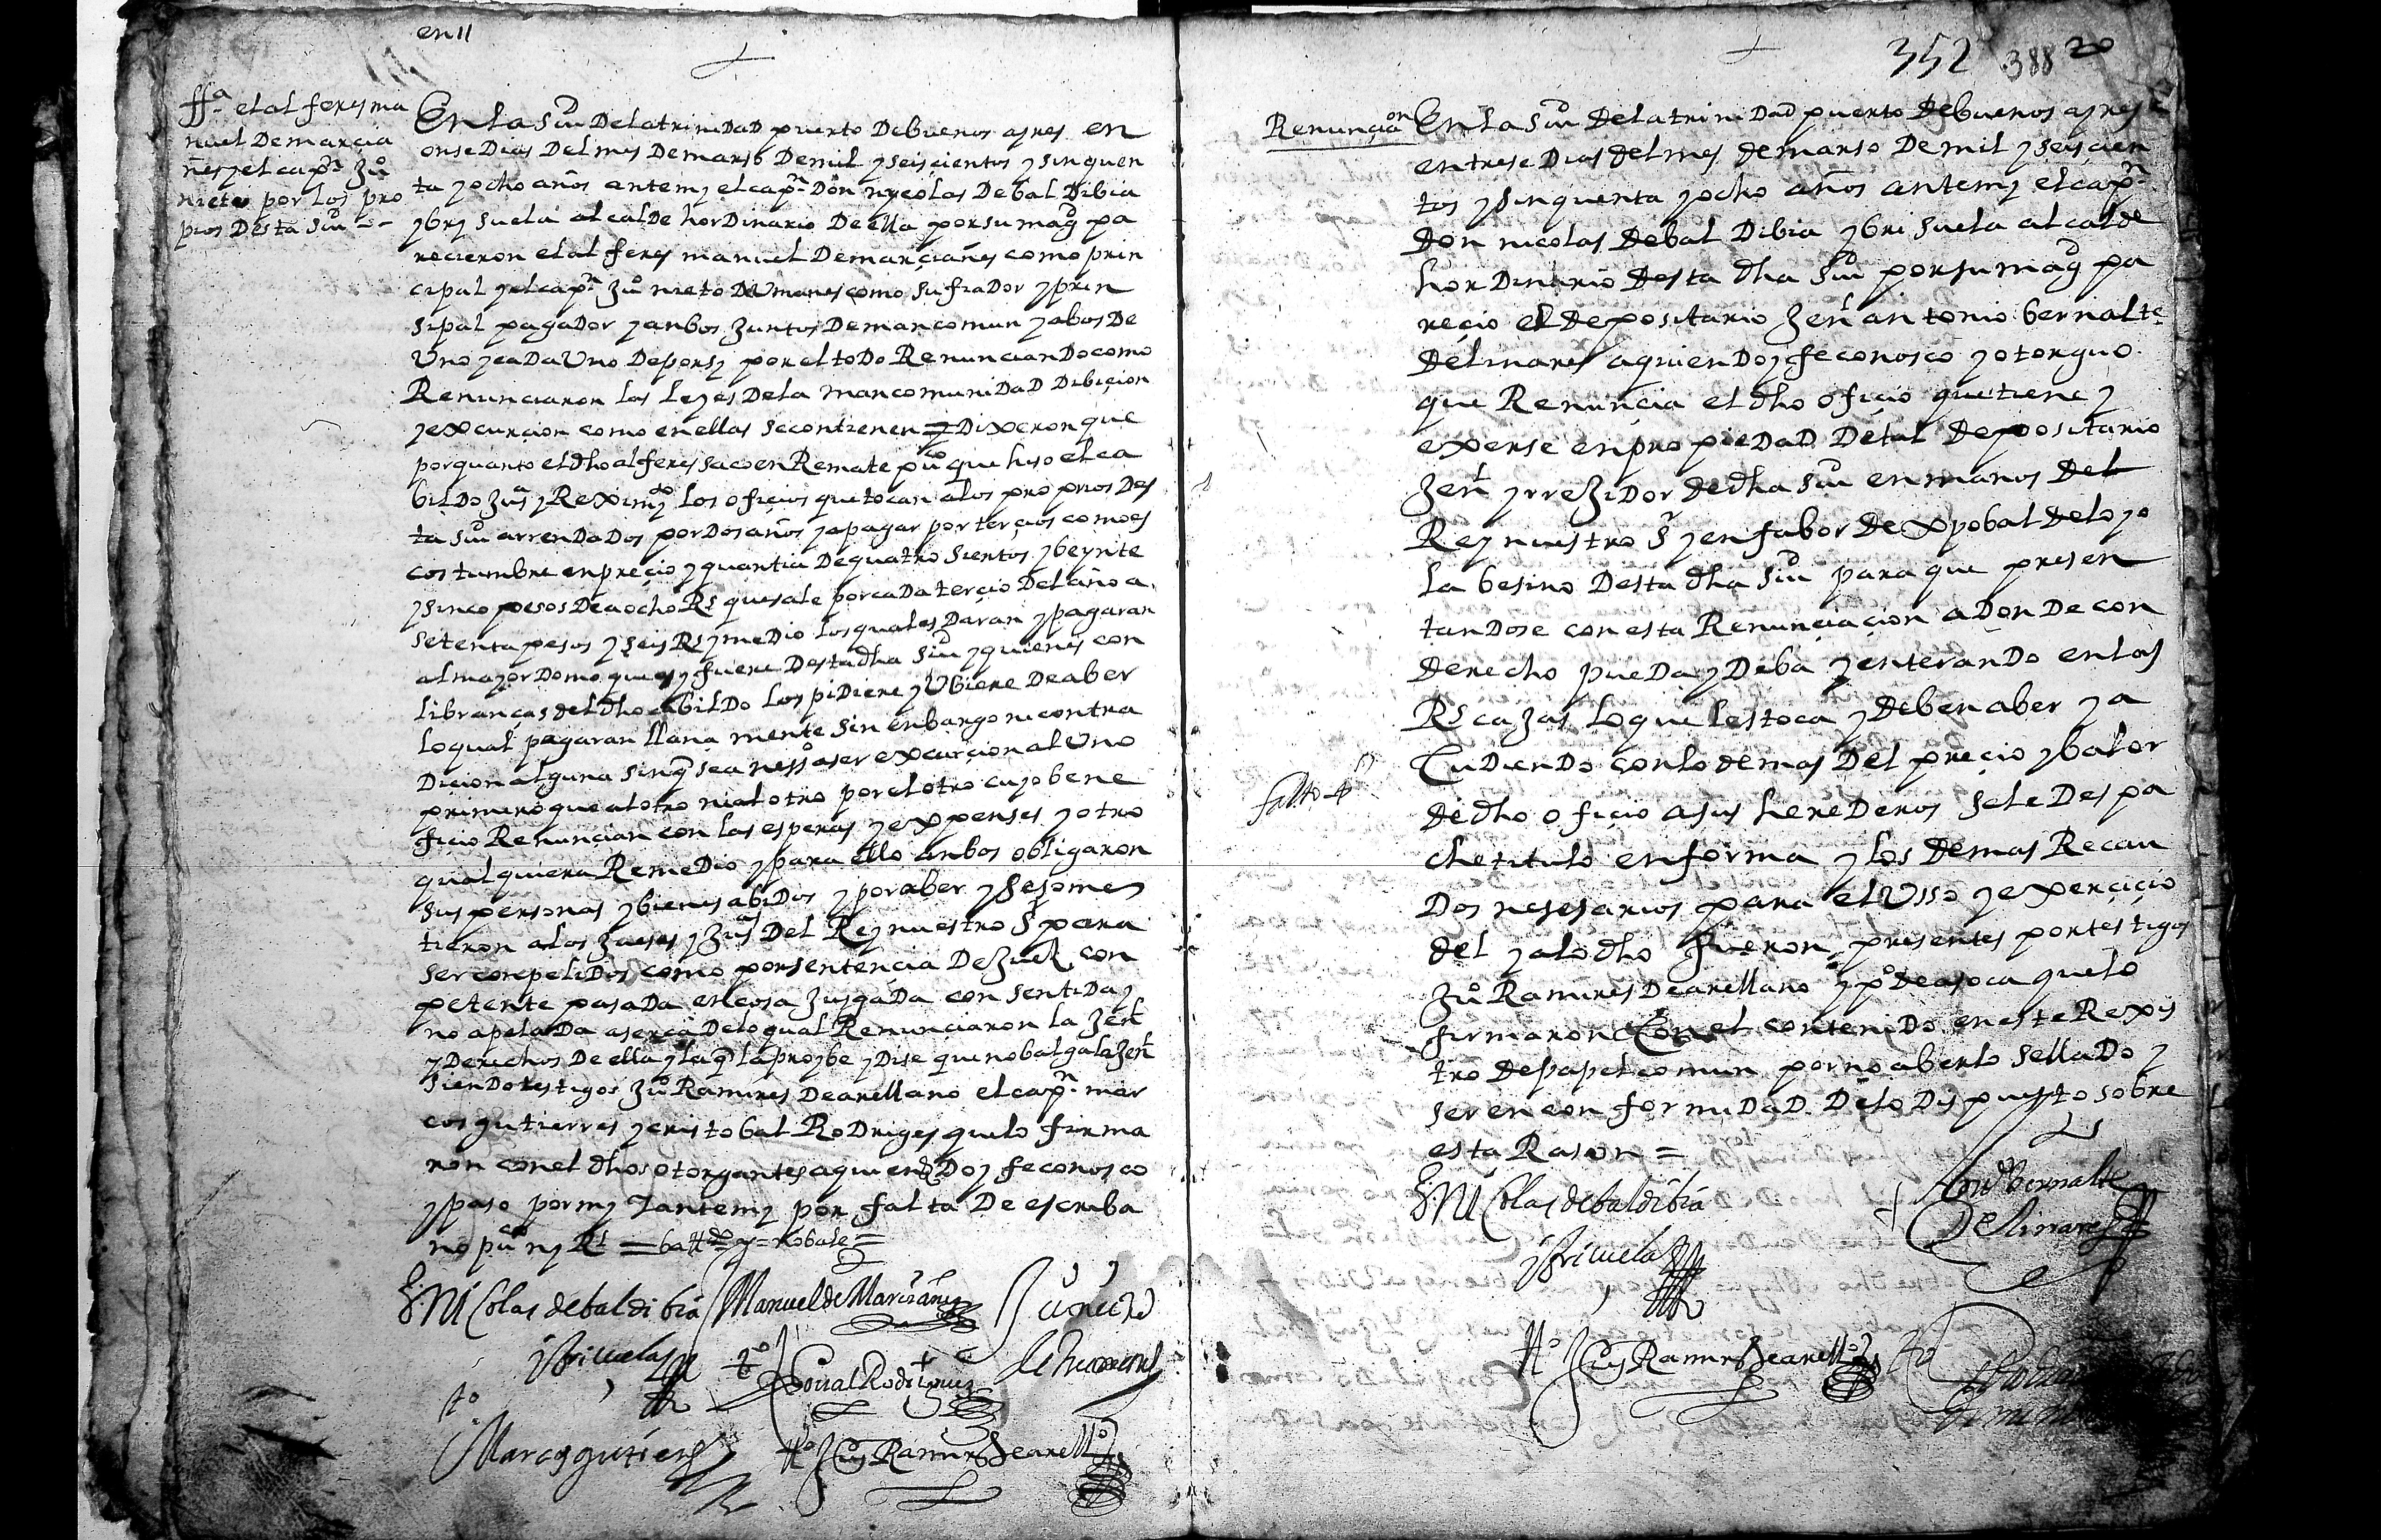 en 11
ffª el alferes ma
nuel De marcia
ñes y el capⁿ Juº
nieto por los pro
pios Desta Siuᵈ --
En la Siuᵈ De la triniDaD puerto De buenos ayres en
onse Dias Del mes De marso De mil y seiscientos y sinquen
ta y ocho años ante my el capⁿ Don nycolas De bal Dibia
y bry suela alcalDe horDinario De ella por su magᵈ pa
recieron el alferes manuel De marciañes como prin
cipal y el capⁿ Juº nieto De Umanes como su fiaDor y prin
sipal pagaDor y anbos Juntos De mancomun y a bos De
Uno y caDa Uno De por sy por el toDo RenuncianDo como
Renunciaron las leyes De la mancomuniDaD Dibicion
y excurcion como en ellas se contienen = y Dixeron que
por quanto el dho alferes saco en Remate puᶜᵒ que hiso el ca
bilDo Jusª y Reximᵗᵒ los oficios que tocan a los proprios Des
ta siuᵈ arrenDaDos por Dos años y a pagar por tercios como es
costumbre en precio y quantia De quatro sientos y beynte
y sinco pesos De a ocho Rs que sale por caDa tercio Del año a
setenta pesos y seis Rs y meDio los quales Daran y pagaran
al mayorDomo que es y fuere Desta dha siuᵈ y quienes con
librancas del dho cabilDo los piDiere y Ubiere De aber
lo qual pagaran llana mente sin enbargo ni contra
Dicion alguna sin q̃ sea nessº aser excurcion al Uno
primero que al otro ni al otro por el otro cuyo bene
ficio Renuncian con las esperas y expenses y otro
qualquiera RemeDio y para ello anbos obligaron
sus personas y bienes abiDos y por aber y se some
tieron a los Jueses y Jusªˢ Del Rey nuestro Sʳ para
ser conpeliDos como por sentencia De Juez con
petente pasaDa en cosa JusgaDa consentiDa y
no apelaDa aserca De lo qual Renunciaron la Jenˡ
y Derechos De ella y la q̃ la proybe y Dise que no balga la Jenˡ
sienDo testigos Juº Ramires De arellano el capⁿ mar
cos gutierres y cristobal RoDriges que lo firma
ron con el dhos otorgantes a quienes Doy fe conosco
y paso por my y ante my por falta De escriba
no puᶜᵒ ny Rˡ =
D. Nicolas de baldibia
y briçuela
Manuel de Marciañes
Juº nieto
de humanes
tº
Xpoual Rodrigues
tº
Marcos gutierres
tº Luis Ramires de arellº
352 388 20
Renunciaᵒⁿ
En la Siuᵈ De la triniDaD puerto De buenos ayres
en trese Dias del mes de marso De mil y seiscien
tos y sinquenta y ocho años ante my el capⁿ
Don nicolas De bal Dibia y bri suela alcalde
hor Dinario Desta dha siuᵈ por su magᵈ pa
recio el Depositario Jenˡ antonio bernalte
De linares a quien Doy fe conosco y otorguo
que Renuncia el dho oficio que tiene y
exerse en propieDaD De tal Depositario
Jenˡ y rreJiDor de dha siuᵈ en manos Del
Rey nuestro Sʳ y en fabor De xpobal De loyo
la besino Desta dha siuᵈ para que presen
tanDose con esta Renunciacion aDonDe con
derecho pueDa y Deba y enteranDo en las
Rs caJas lo que les toca y Deben aber y a
CuDienDo con lo demas Del precio y balor
de dho oficio a sus hereDeros se le Despa
che titulo en forma y los demas Recau
Dos nesesarios para el Usso y exercicio
del y a lo dho fueron presentes por testigos
Juº Ramires De arellano y pº De ayoca que lo
firmaron Con el conteniDo en este Rexis
tro De papel comun por no aberlo sellaDo y
ser en conformiDaD De lo Dispuesto sobre
esta Rason =
falto
D. Nicolas de baldibia
y briçuela
Antº bernalte
De linares
tº Luis Ramires de arellº
tº